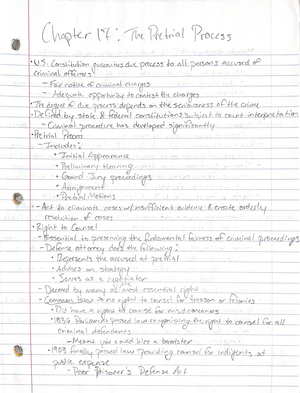 Chapter 17: The Pretrial Process
• U.S. Constitution guarantees due process to all persons accused of
criminal offenses
- Fair notice of criminal charges
- Adequate opportunity to contest the charges
• The degree of due process depends on the seriousness of the crime
• Defined by state & federal constitutions subject to court interpretation
- Criminal procedure has developed significantly
• Pretrial Process
- Includes:
• Initial Appearance
• Preliminary Hearing
• Grand Jury proceedings
• Arraignment
• Pretrial Motions
- Act to eliminate cases w/ insufficient evidence & create orderly
resolution of cases
• Right to Counsel
- Essential to preserving the fundamental fairness of criminal proceedings
- Defense attorney does the following:
• Represents the accused at pretrial
• Advises on strategy
• Serves as a negotiator
- Deemed by many as most essential right
- Common law → no right to counsel for treason or felonies
• Did have a right to counsel for misdemeanors
• 1836 Parliament passed law recognizing the right to counsel for all
criminal defendants
- Means you could hire a barrister
• 1903 finally passed law providing counsel for indigents at
public expense
- Poor Prisoner's Defense Act